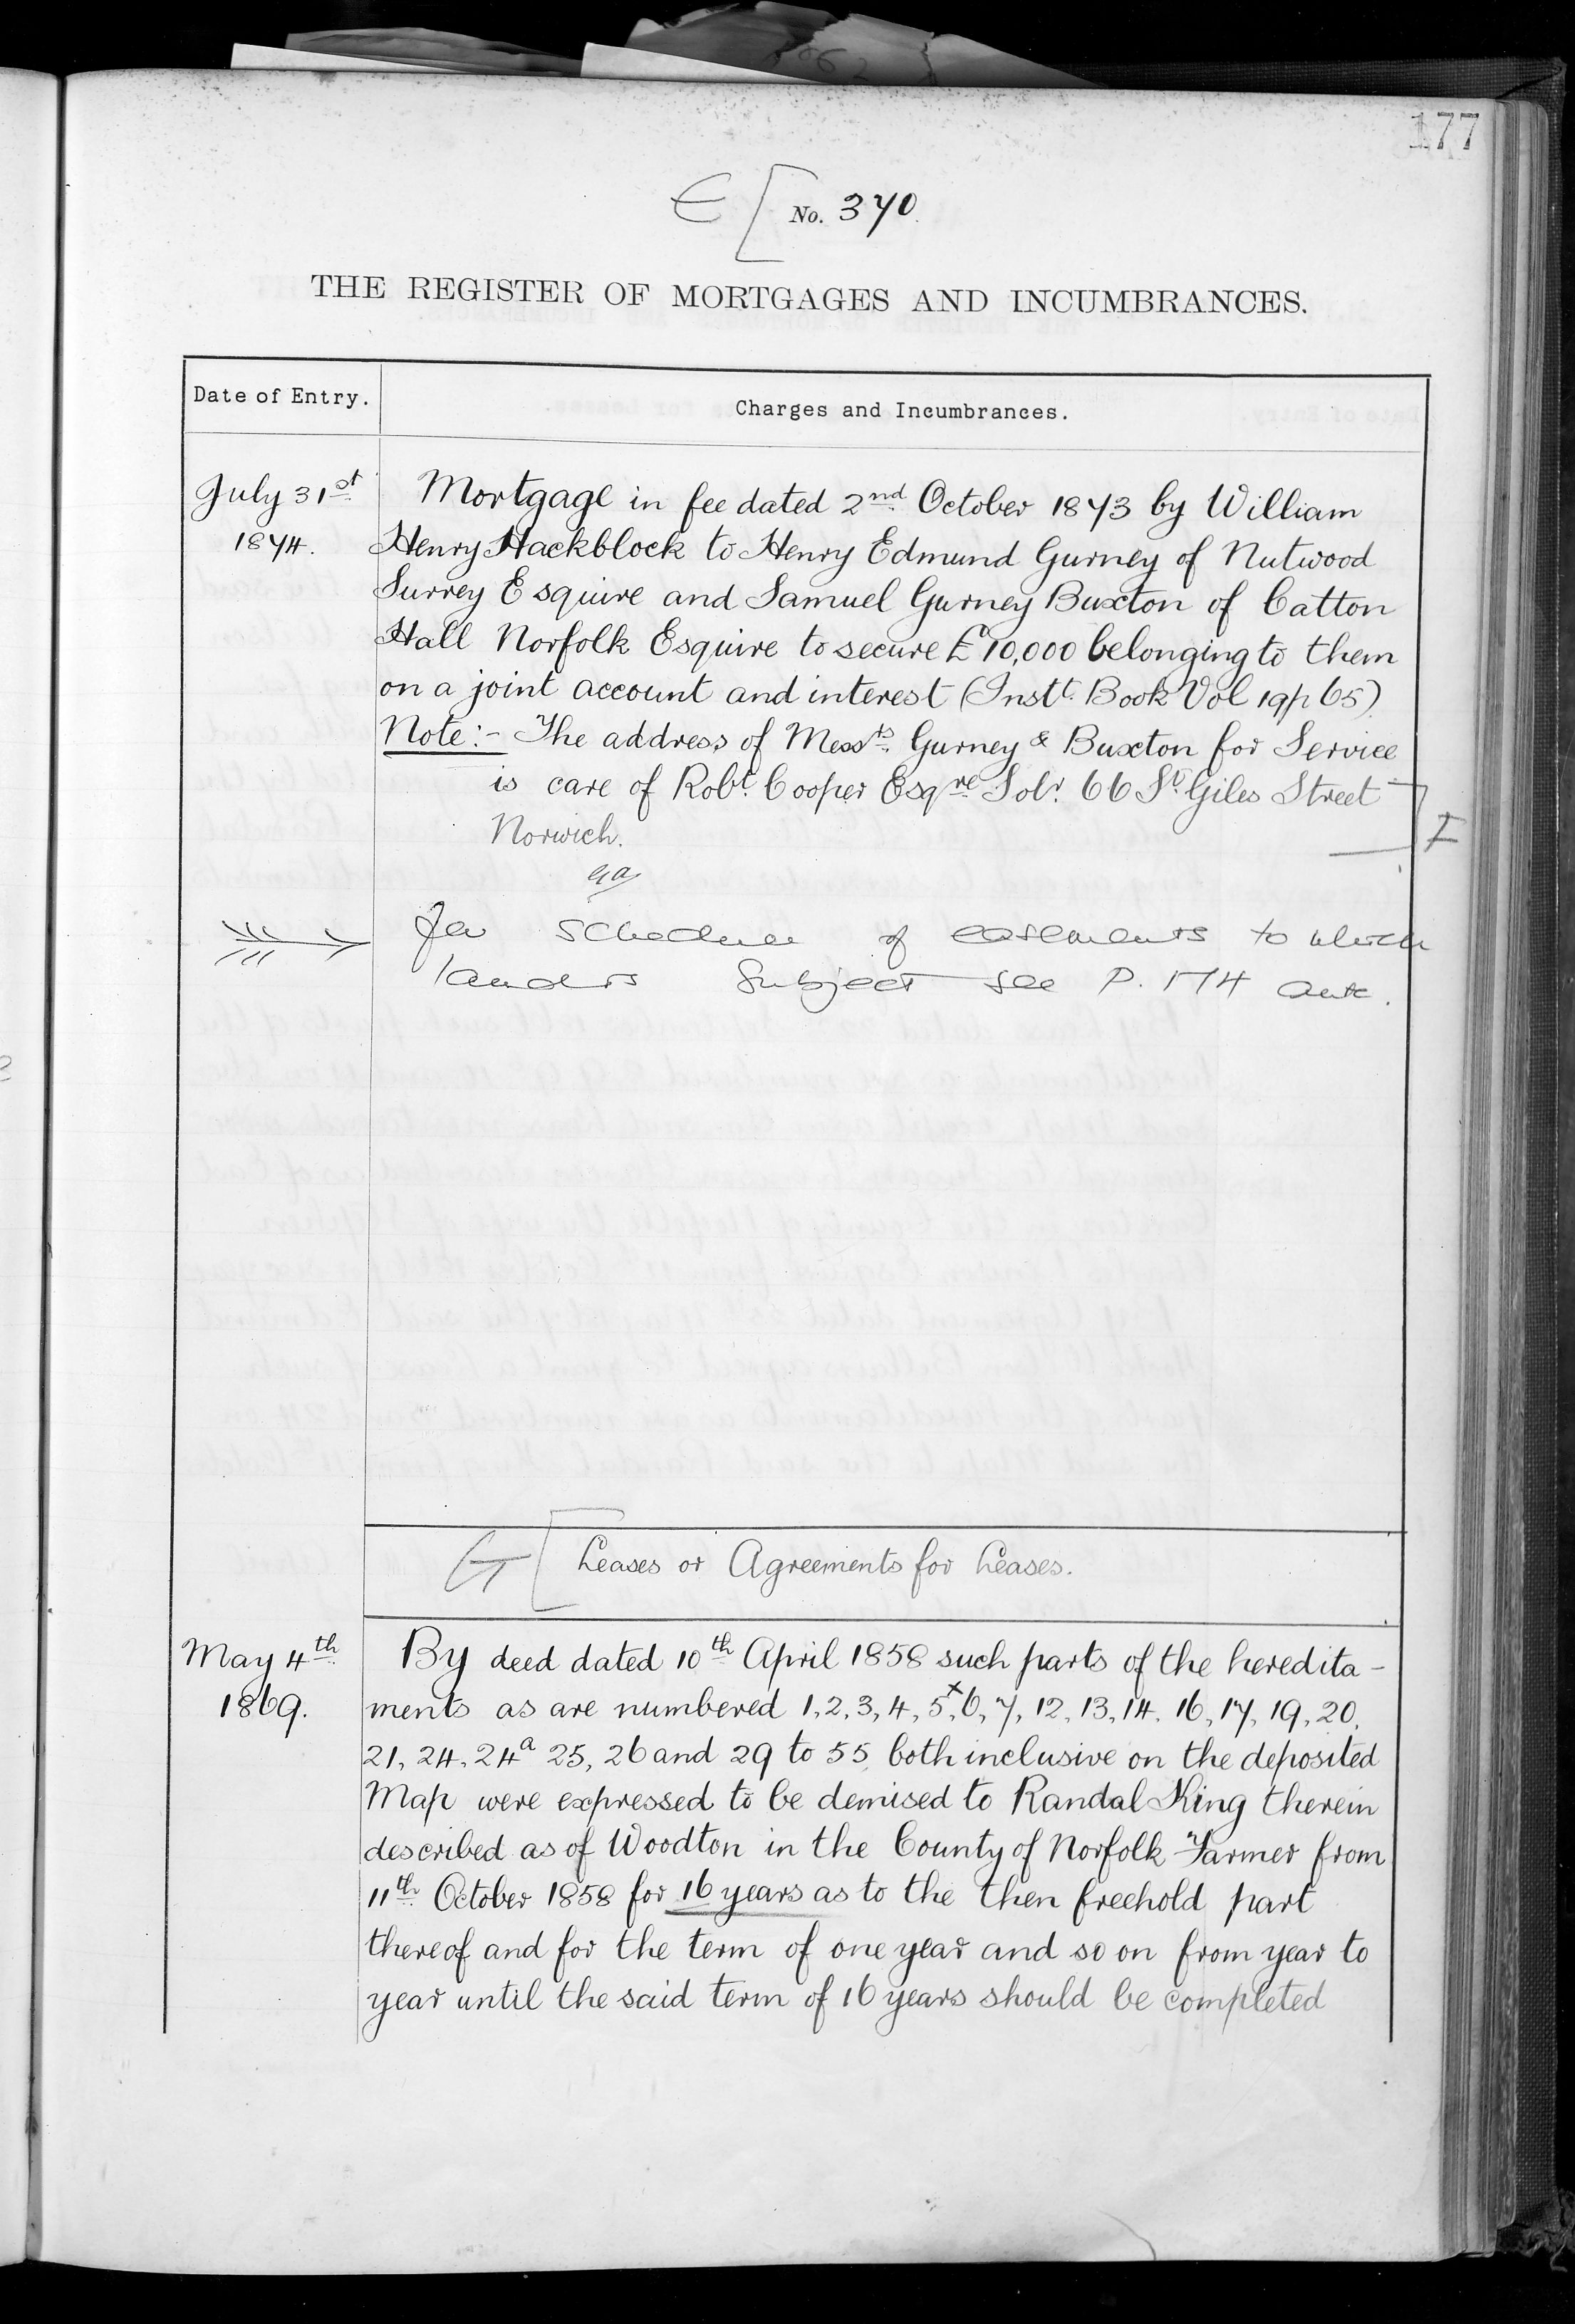 177
E [ No. 370.
THE REGISTER OF MORTGAGES AND INCUMBRANCES.
Date of Entry.
Charges and Incumbrances.
July 31st
1874.
Mortgage in fee dated 2nd October 1873 by William
Henry Hackblock to Henry Edmund Gurney of Nutwood
Surrey Esquire and Samuel Gurney Buxton of Catton
Hall Norfolk Esquire to secure £10,000 belonging to them
on a joint account and interest (Instt. Book Vol 19 p 65)
Note:- The address of Messrs. Gurney & Buxton for Service
is care of Robt. Cooper Esqre Solr. 66 St. Giles Street
Norwich.
I
For Schedule of easements to which
land is Subject see P. 174 ante.
G [ Leases or Agreements for Leases.
May 4th
1869.
By deed dated 10th April 1858 such parts of the heredita-
ments as are numbered 1, 2, 3, 4, 5x, 6, 7, 12, 13, 14, 16, 17, 19, 20,
21, 24, 24a 25, 26 and 29 to 55 both inclusive on the deposited
Map were expressed to be demised to Randal King therein
described as of Woodton in the County of Norfolk Farmer from
11th October 1858 for 16 years as to the then freehold part
thereof and for the term of one year and so on from year to
year until the said term of 16 years should be completed